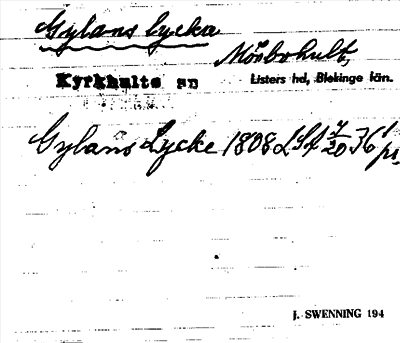 Gylans lycka
Mörbohult,
Kyrkhults sn Listers hd, Blekinge län.
Gylans Lycke 1808 LSA 7/20 36
J. SWENNING 194